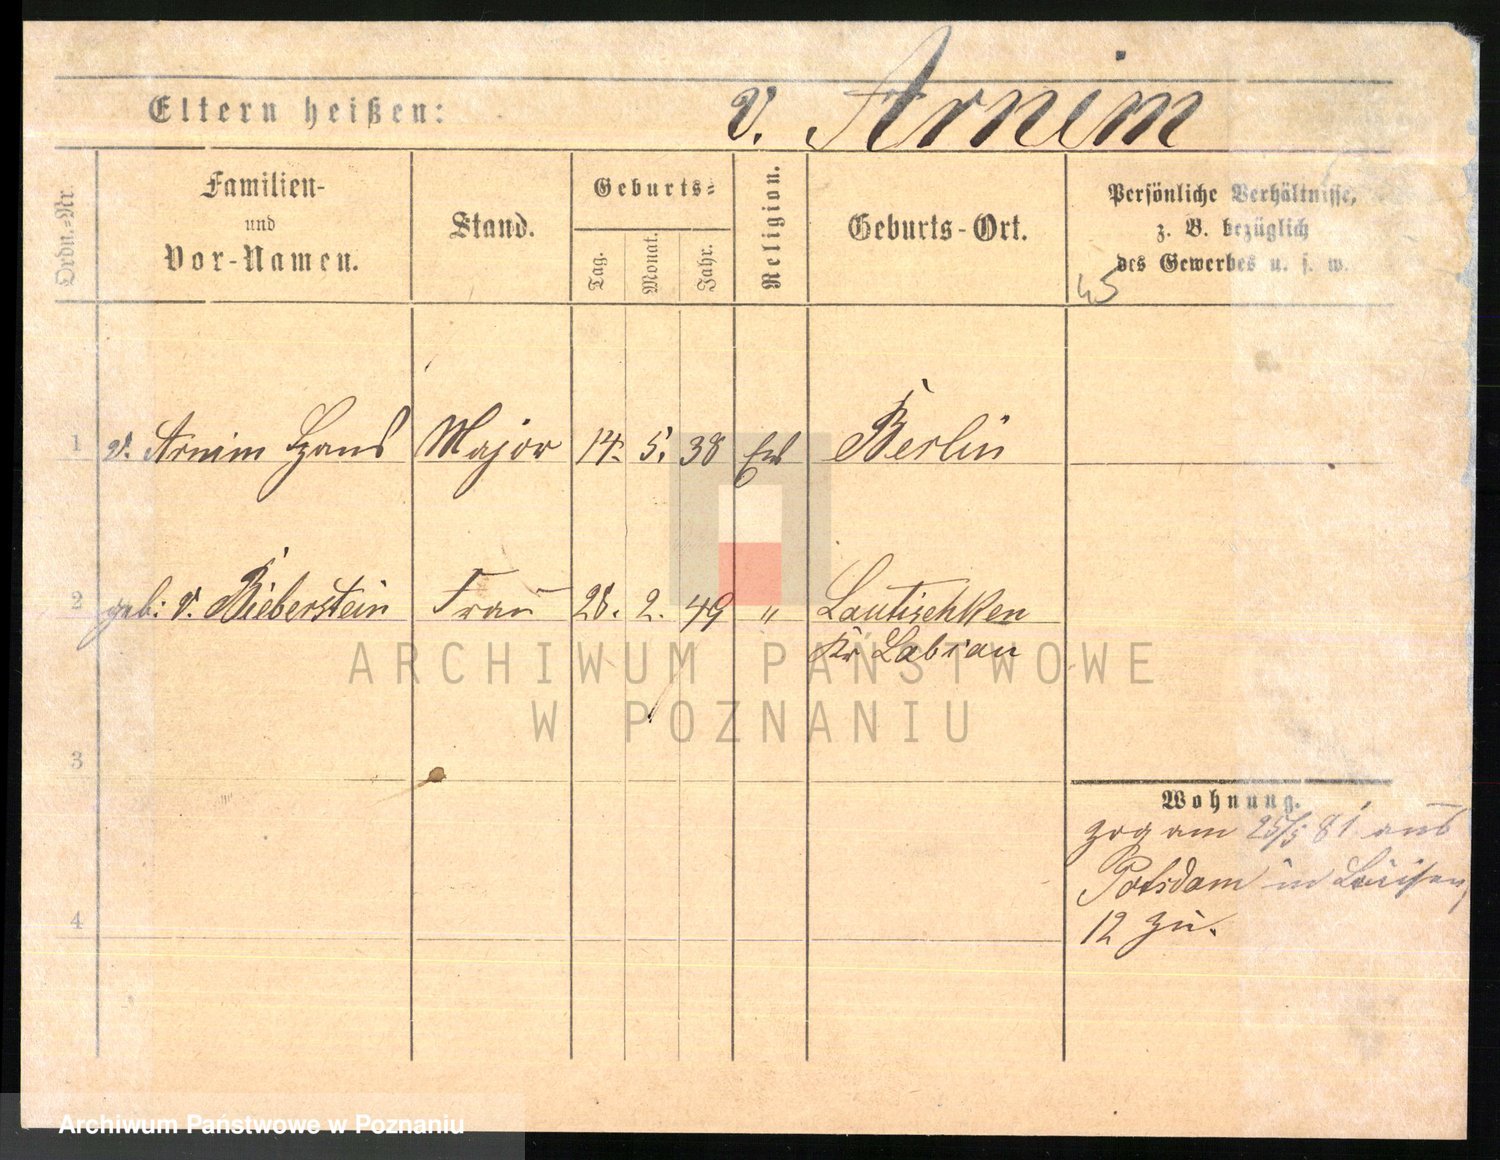 Eltern heißen: v. Arnim
Ordn.-Nr.
Familien-
und
Vor-Namen.
Stand.
Geburts-
Tag.
Monat.
Jahr.
Religion.
Geburts-Ort.
Persönliche Verhältnisse,
z. B. bezüglich
des Gewerbes u. s. w.
45
1 v. Arnim Hans Major 14. 5. 38 Ev Berlin
2 geb: v. Bieberstein Frau 28. 2. 49 " Lautischken
Kr Labiau
ARCHIWUM PAŃSTWOWE
W POZNANIU
3
Wohnung.
zog am 25/5 81 aus
Potsdam in Louisen
4
12 zu.
Archiwum Państwowe w Poznaniu